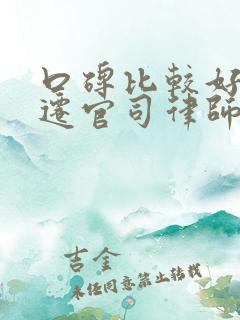 口碑比较好
迁官司律师
吉金
未经同意禁止转载